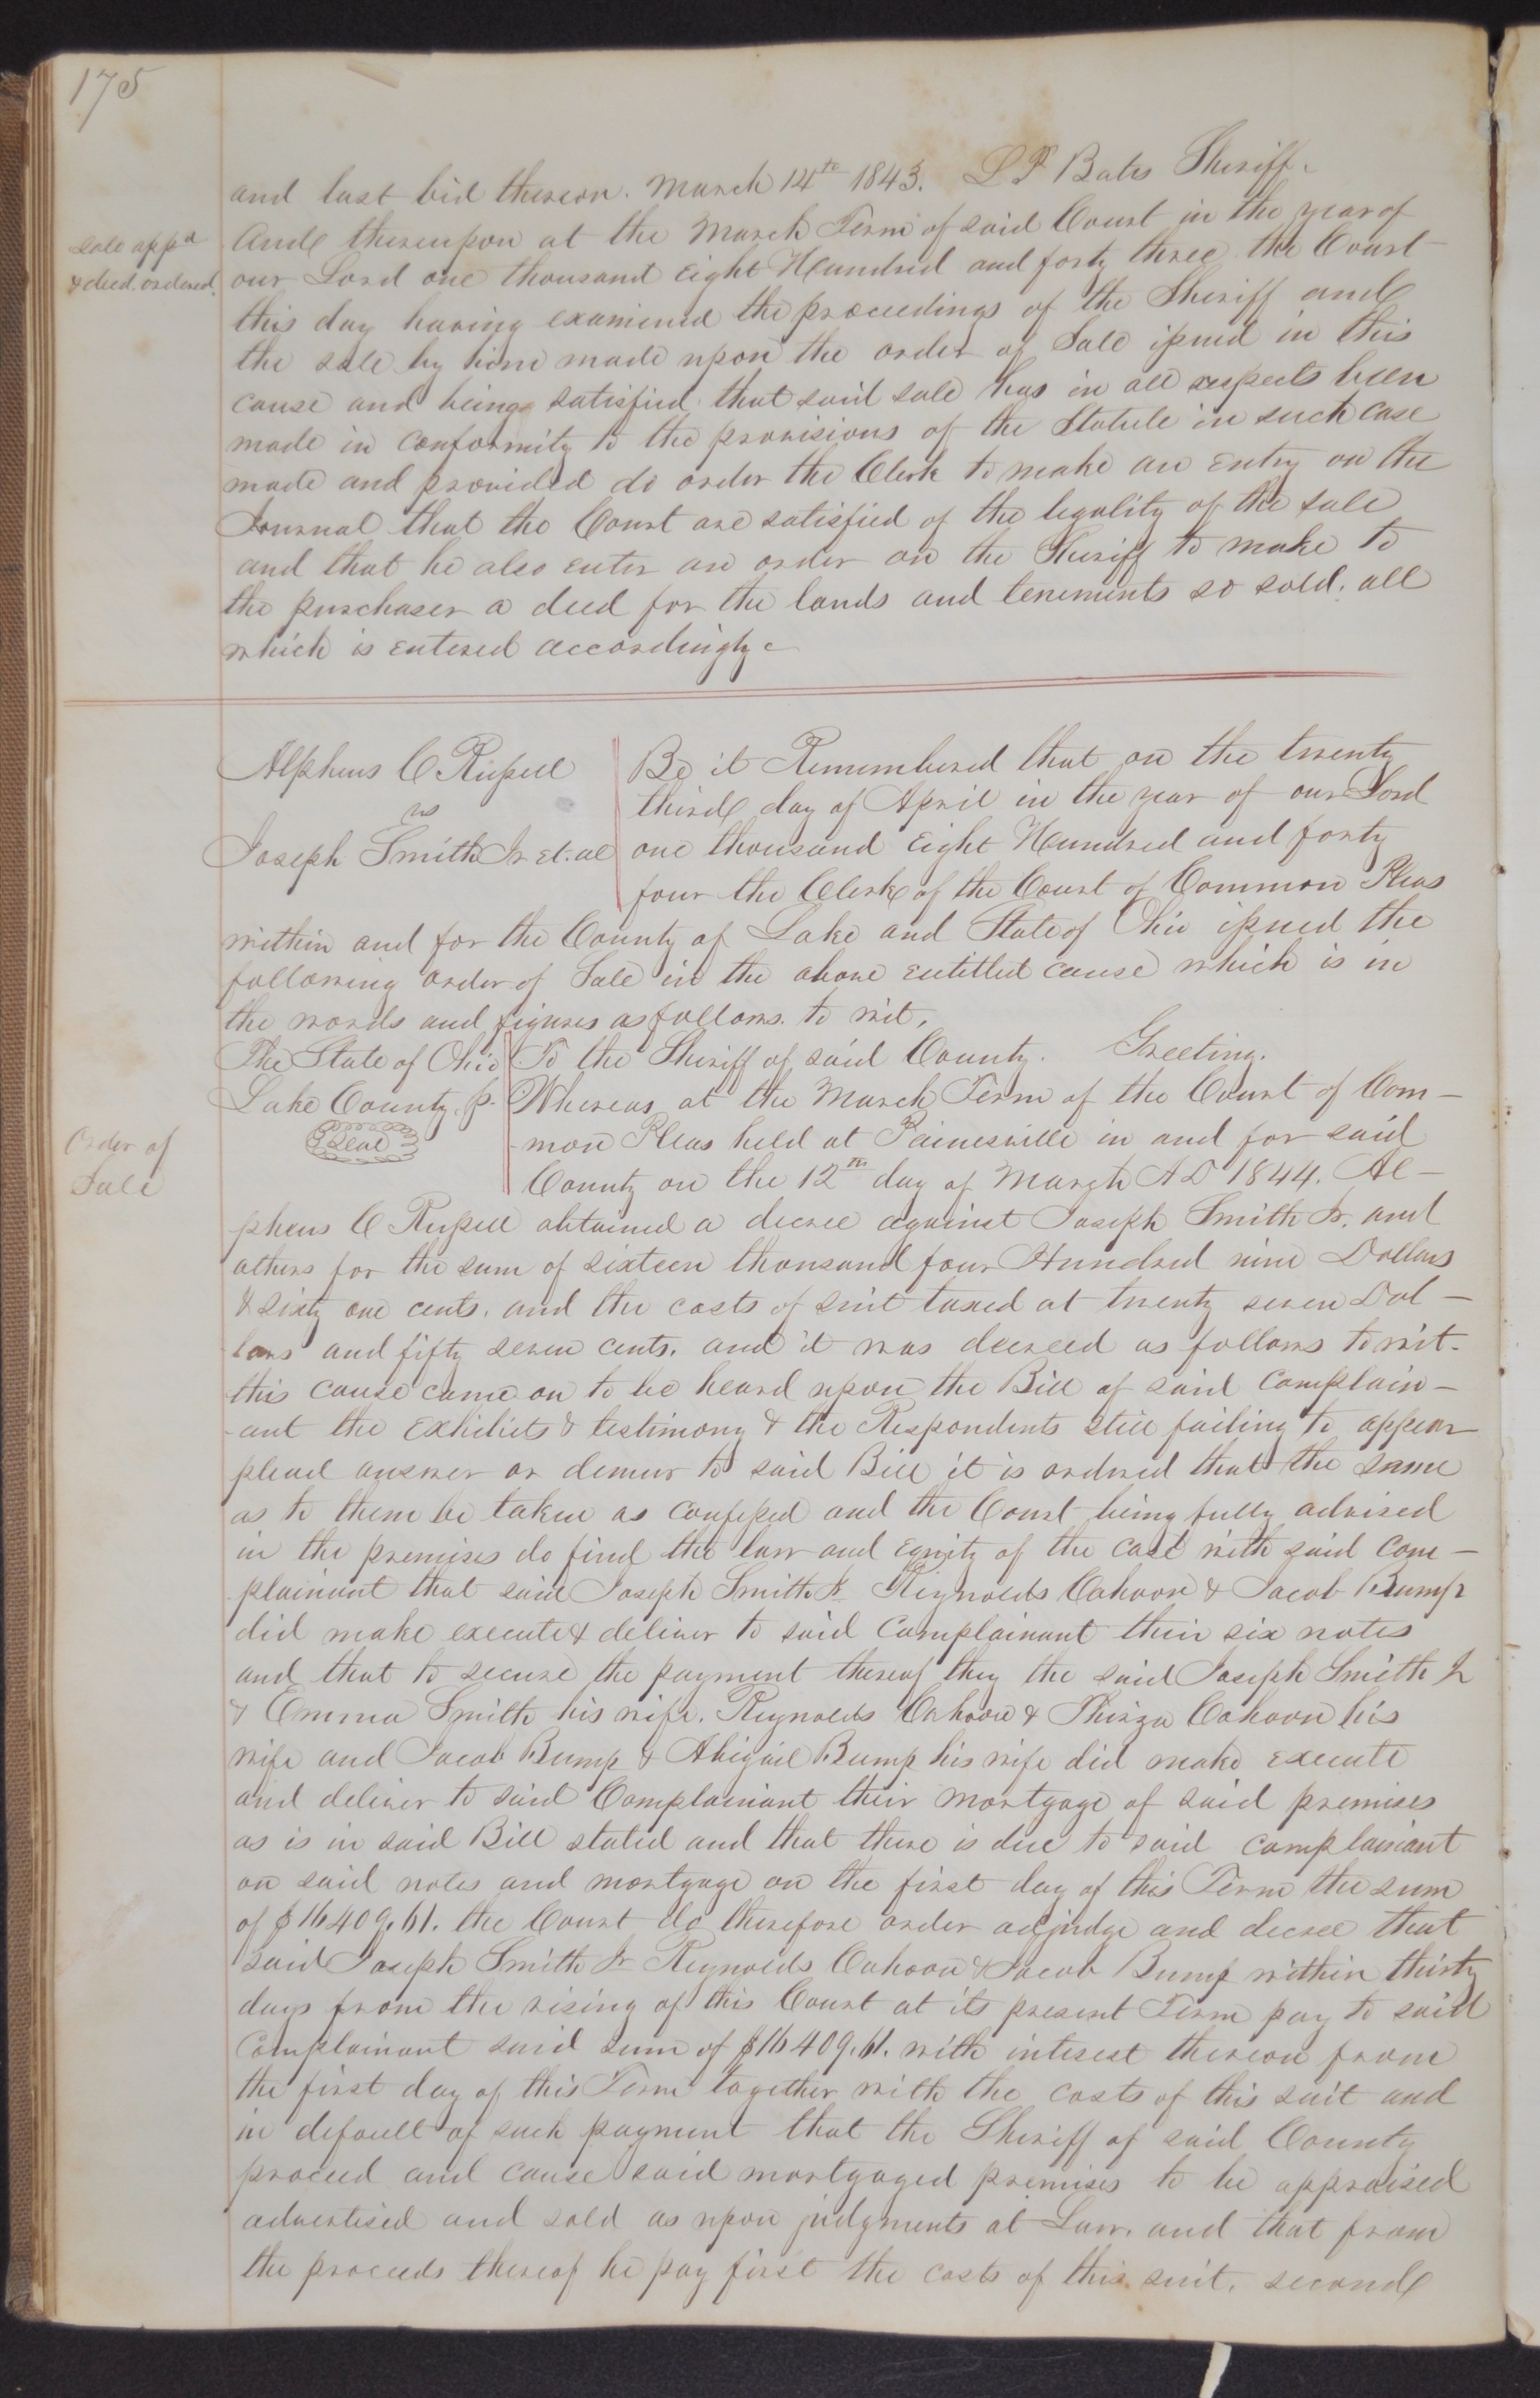 175
and last bid thereon. March 14th 1843. L P Bates Sheriff.
sale appd & deed ordered.
And thereupon at the March Term of said Court in the year of
our Lord one thousand Eight Hundred and forty three the Court
this day having examined the proceedings of the Sheriff and
the sale by him made upon the order of Sale issued in this
cause and being satisfied that said sale has in all respects been
made in conformity to the provisions of the Statute in such case
made and provided do order the Clerk to make an Entry on the
Journal that the Court are satisfied of the legality of the sale
and that he also enter an order on the Sheriff to make to
the purchaser a deed for the lands and tenements so sold. all
which is entered accordingly
Alpheus C Russell
vs
Joseph Smith Jr et. al
Be it Remembered that on the twenty
third day of April in the year of our Lord
one thousand Eight Hundred and forty
four the Clerk of the Court of Common Pleas
within and for the County of Lake and State of Ohio issued the
following order of Sale in the above entitled cause which is in
the words and figures as follows. to wit,
The State of Ohio
Lake County. ss.
Seal
Order of
Sale
To the Sheriff of said County. Greeting.
Whereas at the March Term of the Court of Com-
-mon Pleas held at Painesville in and for said
County on the 12th day of March A D 1844. Al-
pheus C Russell obtained a decree against Joseph Smith Jr. and
others for the sum of sixteen thousand four Hundred nine Dollars
& sixty one cents. and the costs of suit taxed at twenty seven Dol-
lars and fifty seven cents. and it was decreed as follows to wit.
this cause came on to be heard upon the Bill of said Complain-
-ant the Exhibits & testimony & the Respondents still failing to appear
plead answer or demur to said Bill it is ordered that the same
as to them be taken as confessed and the Court being fully advised
in the premises do find the law and Equity of the case with said com-
plainant that said Joseph Smith Jr Reynolds Cahoon & Jacob Bump
did make execute & deliver to said Complainant their six notes
and that to secure the payment thereof they the said Joseph Smith Jr
& Emma Smith his wife. Reynolds Cahoon & Thirza Cahoon his
wife and Jacob Bump & Abigail Bump his wife did make execute
and deliver to said Complainant their mortgage of said premises
as is in said Bill stated and that there is due to said complainant
on said notes and mortgage on the first day of this Term the sum
of $16409.61. the Court do therefore order adjudge and decree that
said Joseph Smith Jr Reynolds Cahoon & Jacob Bump within thirty
days from the rising of this Court at its present Term pay to said
Complainant said sum of $16409.61. with interest thereon from
the first day of this Term together with the costs of this suit and
in default of such payment that the Sheriff of said County
proceed and cause said mortgaged premises to be appraised
advertised and sold as upon judgments at Law. and that from
the proceeds thereof he pay first the costs of this suit. second